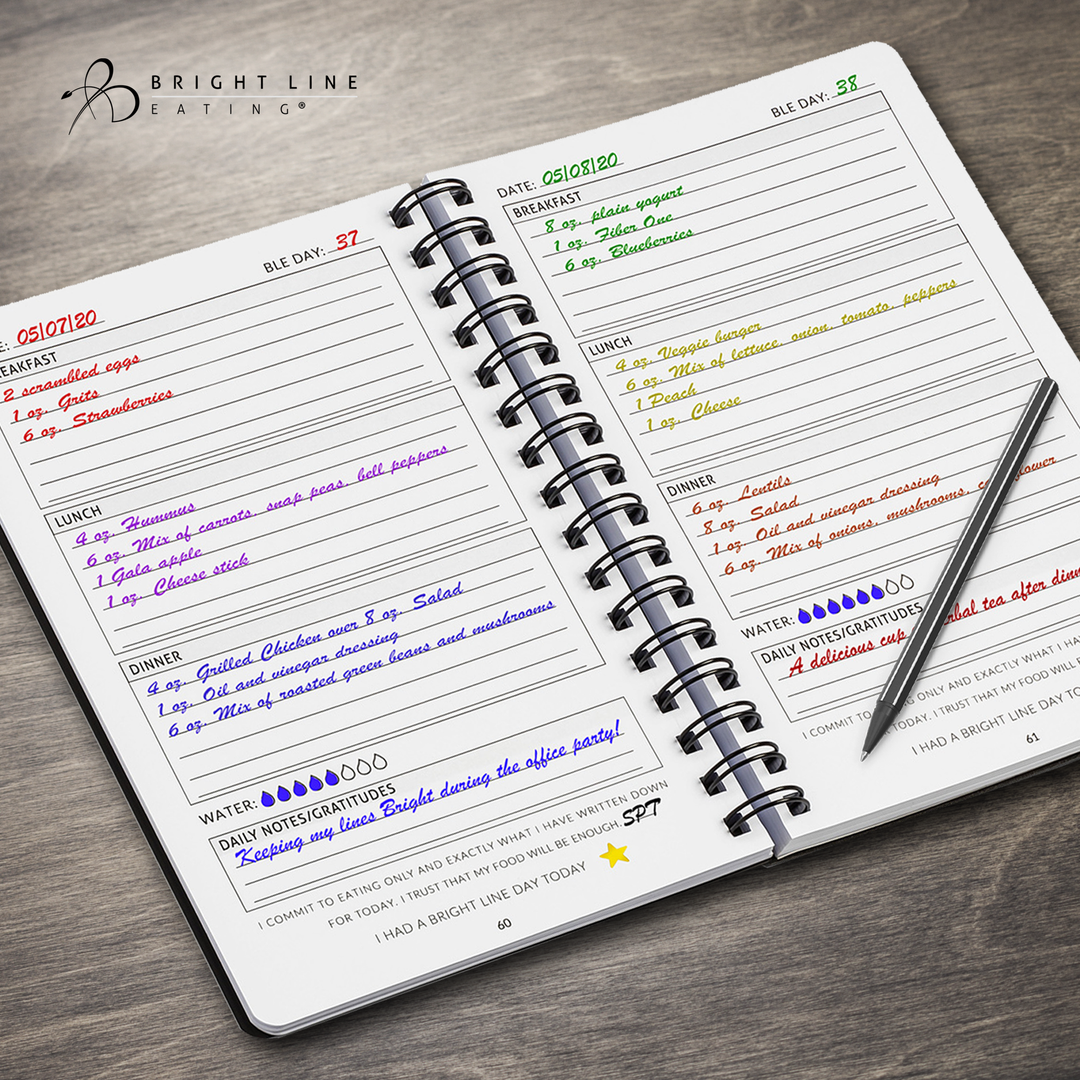 BRIGHT LINE
EATING®
BLE DAY: 37
05|07|20
2 scrambled eggs
1 oz. Grits
6 oz. Strawberries
LUNCH
4 oz. Hummus
6 oz. Mix of carrots, snap peas, bell peppers
1 Gala apple
1 oz. Cheese stick
DINNER
4 oz. Grilled Chicken over 8 oz. Salad
1 oz. Oil and vinegar dressing
6 oz. Mix of roasted green beans and mushrooms
WATER:
DAILY NOTES/GRATITUDES
Keeping my lines Bright during the office party!
I COMMIT TO EATING ONLY AND EXACTLY WHAT I HAVE WRITTEN DOWN
FOR TODAY. I TRUST THAT MY FOOD WILL BE ENOUGH. SPT
I HAD A BRIGHT LINE DAY TODAY
60
BLE DAY: 38
DATE: 05|08|20
BREAKFAST
8 oz. plain yogurt
1 oz. Fiber One
6 oz. Blueberries
LUNCH
4 oz. Veggie burger
6 oz. Mix of lettuce, onion, tomato, peppers
1 Peach
1 oz. Cheese
DINNER
6 oz. Lentils
8 oz. Salad
1 oz. Oil and vinegar dressing
6 oz. Mix of onions, mushrooms,
WATER:
DAILY NOTES/GRATITUDES
A delicious cup tea after
I COMMIT ONLY AND EXACTLY WHAT I
TODAY. I TRUST THAT MY FOOD WILL
I HAD A BRIGHT LINE DAY
61